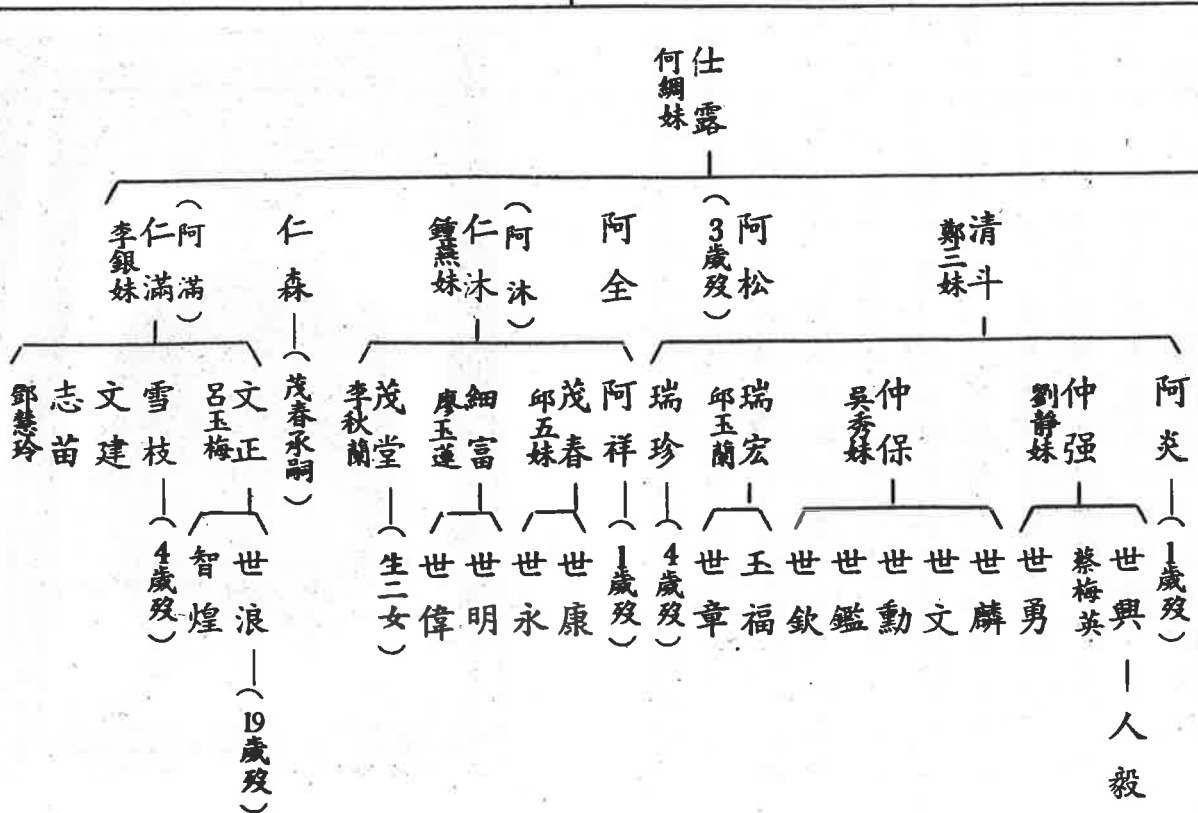 仕露
何綢妹
清斗
鄭三妹
阿松
（3歲歿）
阿全
（阿沐）
仁沐
鍾燕妹
仁森
（茂春承嗣）
（阿滿）
仁滿
李銀妹
阿炎
（1歲歿）
仲强
劉靜妹
仲保
吳秀妹
瑞宏
邱玉蘭
瑞珍
（4歲歿）
阿祥
（1歲歿）
茂春
邱五妹
細富
廖玉蓮
茂堂
李秋蘭
（生二女）
文正
呂玉梅
雪枝
（4歲歿）
文建
志苗
鄧慧玲
世興
蔡梅英
世勇
世麟
世文
世勳
世鑑
世欽
玉福
世章
世康
世永
世明
世偉
世浪
（19歲歿）
智煌
人毅